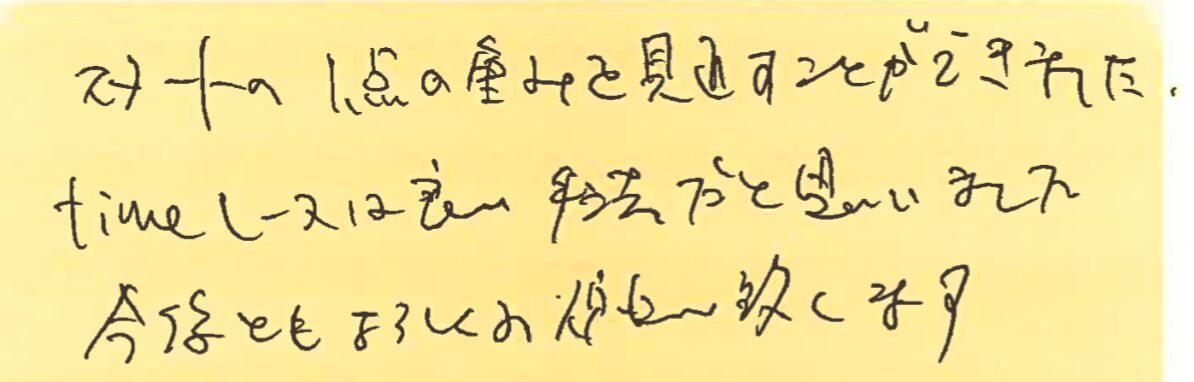 スタートの1点の重みを見直すことができました.
timeレースは良い手法だと思いました
今後ともよろしくお願い致します